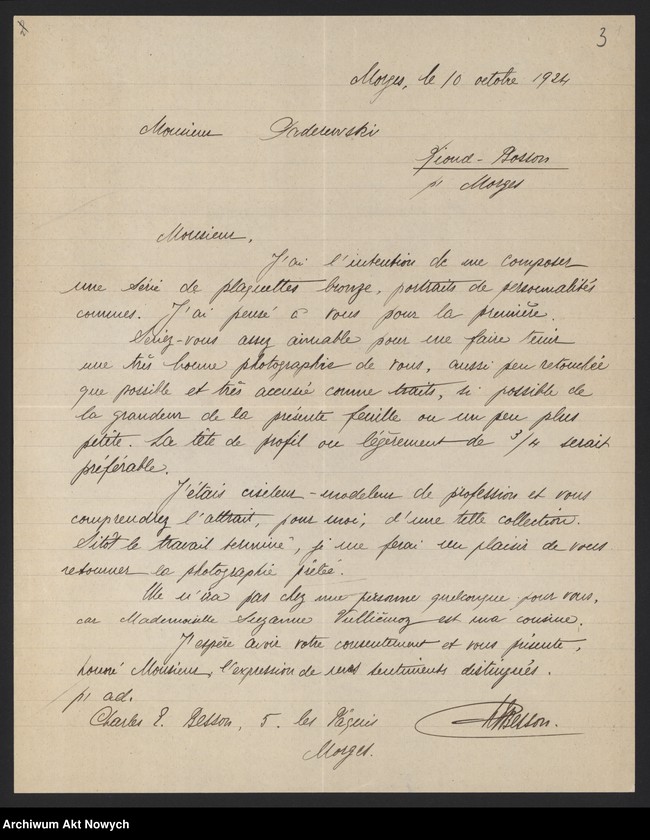 3
Morges, le 10 octobre 1924
Monsieur Paderewski
Riond-Bosson
p/ Morges
Monsieur,
J'ai l'intention de me composer
une série de plaquettes bronze, portraits de personnalités
connues. J'ai pensé à vous pour la première.
Seriez-vous assez aimable pour me faire tenir
une très bonne photographie de vous, aussi peu retouchée
que possible et très accusée comme traits, si possible de
la grandeur de la présente feuille ou un peu plus
petite. La tête de profil ou légèrement de 3/4 serait
préférable.
J'étais ciseleur-modeleur de profession et vous
comprendrez l'attrait, pour moi, d'une telle collection.
Sitôt le travail terminé, je me ferai un plaisir de vous
retourner la photographie prêtée.
Elle n'ira pas chez une personne quelconque pour vous,
car Mademoiselle Suzanne Vulliémoz est ma cousine.
J'espère avoir votre consentement et vous présente,
honoré Monsieur, l'expression de mes sentiments distingués.
p/ ad.
Charles E. Besson, 5. les Pâquis Besson.
Morges.
Archiwum Akt Nowych